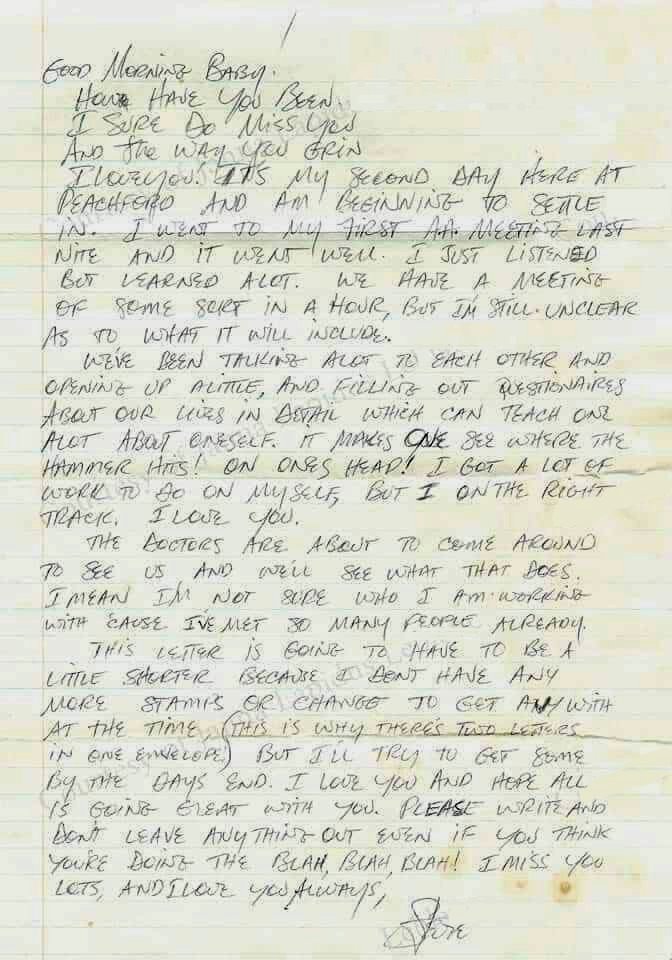 GOOD MORNING BABY.
HOW HAVE YOU BEEN.
I SURE DO MISS YOU
AND THE WAY YOU GRIN
I LOVE YOU. IT'S MY SECOND DAY HERE AT
PEACHFORD AND AM BEGINNING TO SETTLE
IN. I WENT TO MY FIRST A.A. MEETING LAST
NITE AND IT WENT WELL. I JUST LISTENED
BUT LEARNED ALOT. WE HAVE A MEETING
OF SOME SORT IN A HOUR, BUT I'M STILL UNCLEAR
AS TO WHAT IT WILL INCLUDE.
WE'VE BEEN TALKING ALOT TO EACH OTHER AND
OPENING UP ALITTLE, AND FILLING OUT QUESTIONAIRES
ABOUT OUR LIVES IN DETAIL WHICH CAN TEACH ONE
ALOT ABOUT ONESELF. IT MAKES ONE SEE WHERE THE
HAMMER HITS! ON ONES HEAD! I GOT A LOT OF
WORK TO DO ON MYSELF, BUT I ON THE RIGHT
TRACK. I LOVE YOU.
THE DOCTORS ARE ABOUT TO COME AROUND
TO SEE US AND WE'LL SEE WHAT THAT DOES.
I MEAN I'M NOT SURE WHO I AM WORKING
WITH 'CAUSE I'VE MET SO MANY PEOPLE ALREADY.
THIS LETTER IS GOING TO HAVE TO BE A
LITTLE SHORTER BECAUSE I DON'T HAVE ANY
MORE STAMPS OR CHANGE TO GET ANY WITH
AT THE TIME (THIS IS WHY THERE'S TWO LETTERS
IN ONE ENVELOPE) BUT I'LL TRY TO GET SOME
BY THE DAYS END. I LOVE YOU AND HOPE ALL
IS GOING GREAT WITH YOU. PLEASE WRITE AND
DON'T LEAVE ANYTHING OUT EVEN IF YOU THINK
YOU'RE DOING THE BLAH, BLAH, BLAH! I MISS YOU
LOTS, AND I LOVE YOU ALWAYS,